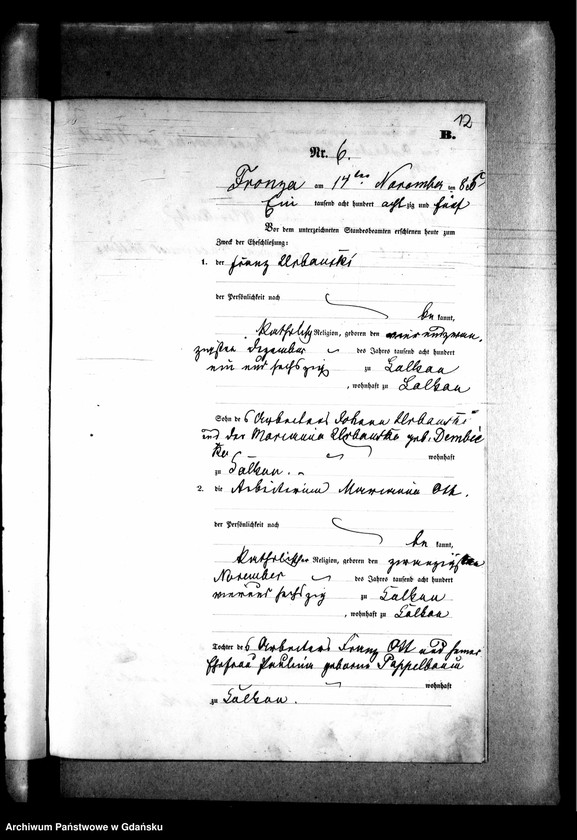 12
B.
Nr. 6.
Fronza am 14ten November 1885
Ein tausend acht hundert acht zig und fünf
Vor dem unterzeichneten Standesbeamten erschienen heute zum
Zweck der Eheschließung:
1. der Franz Urbanski
der Persönlichkeit nach
be kannt,
katholisch Religion, geboren den vier und zwan-
zigsten Dezember des Jahres tausend acht hundert
ein und sechszig zu Lalkau
, wohnhaft zu Lalkau
Sohn des Arbeiters Johann Urbanski
und der Marianna Urbanski geb. Dembic
ka wohnhaft
zu Lalkau.
2. die Arbeiterin Marianna Ott.
der Persönlichkeit nach
be kannt,
katholischer Religion, geboren den zwanzigsten
November des Jahres tausend acht hundert
vierund sechszig zu Lalkau
, wohnhaft zu Lalkau
Tochter des Arbeiters Franz Ott und seiner
Ehefrau Paulina geborne Pappelbaum
wohnhaft
zu Lalkau.
Archiwum Państwowe w Gdańsku